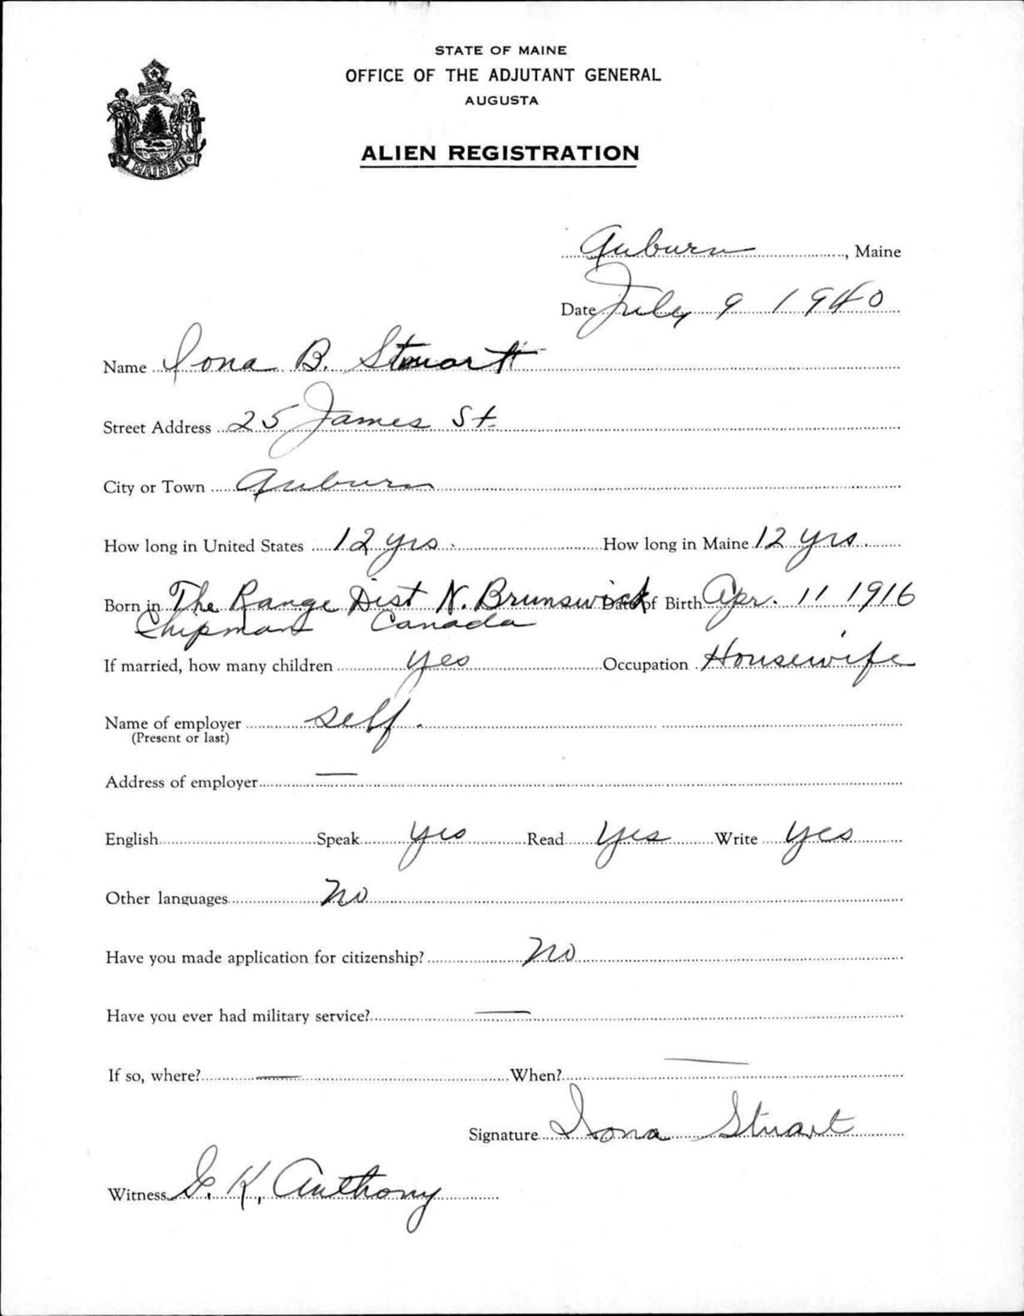 STATE OF MAINE
OFFICE OF THE ADJUTANT GENERAL
AUGUSTA
ALIEN REGISTRATION
MAINE
Auburn, Maine
Date July 9 1940
Name Iona B. Stewart
Street Address 25 James St.
City or Town Auburn
How long in United States 12 yrs. How long in Maine 12 yrs.
Born in The Range Dist N. Brunswick Date of Birth Apr. 11 1916
Chipman Canada
If married, how many children yes Occupation Housewife
Name of employer self.
(Present or last)
Address of employer —
English Speak yes Read yes Write yes
Other languages no
Have you made application for citizenship? no
Have you ever had military service? —
If so, where? — When? —
Signature Iona Stuart
Witness K. Anthony